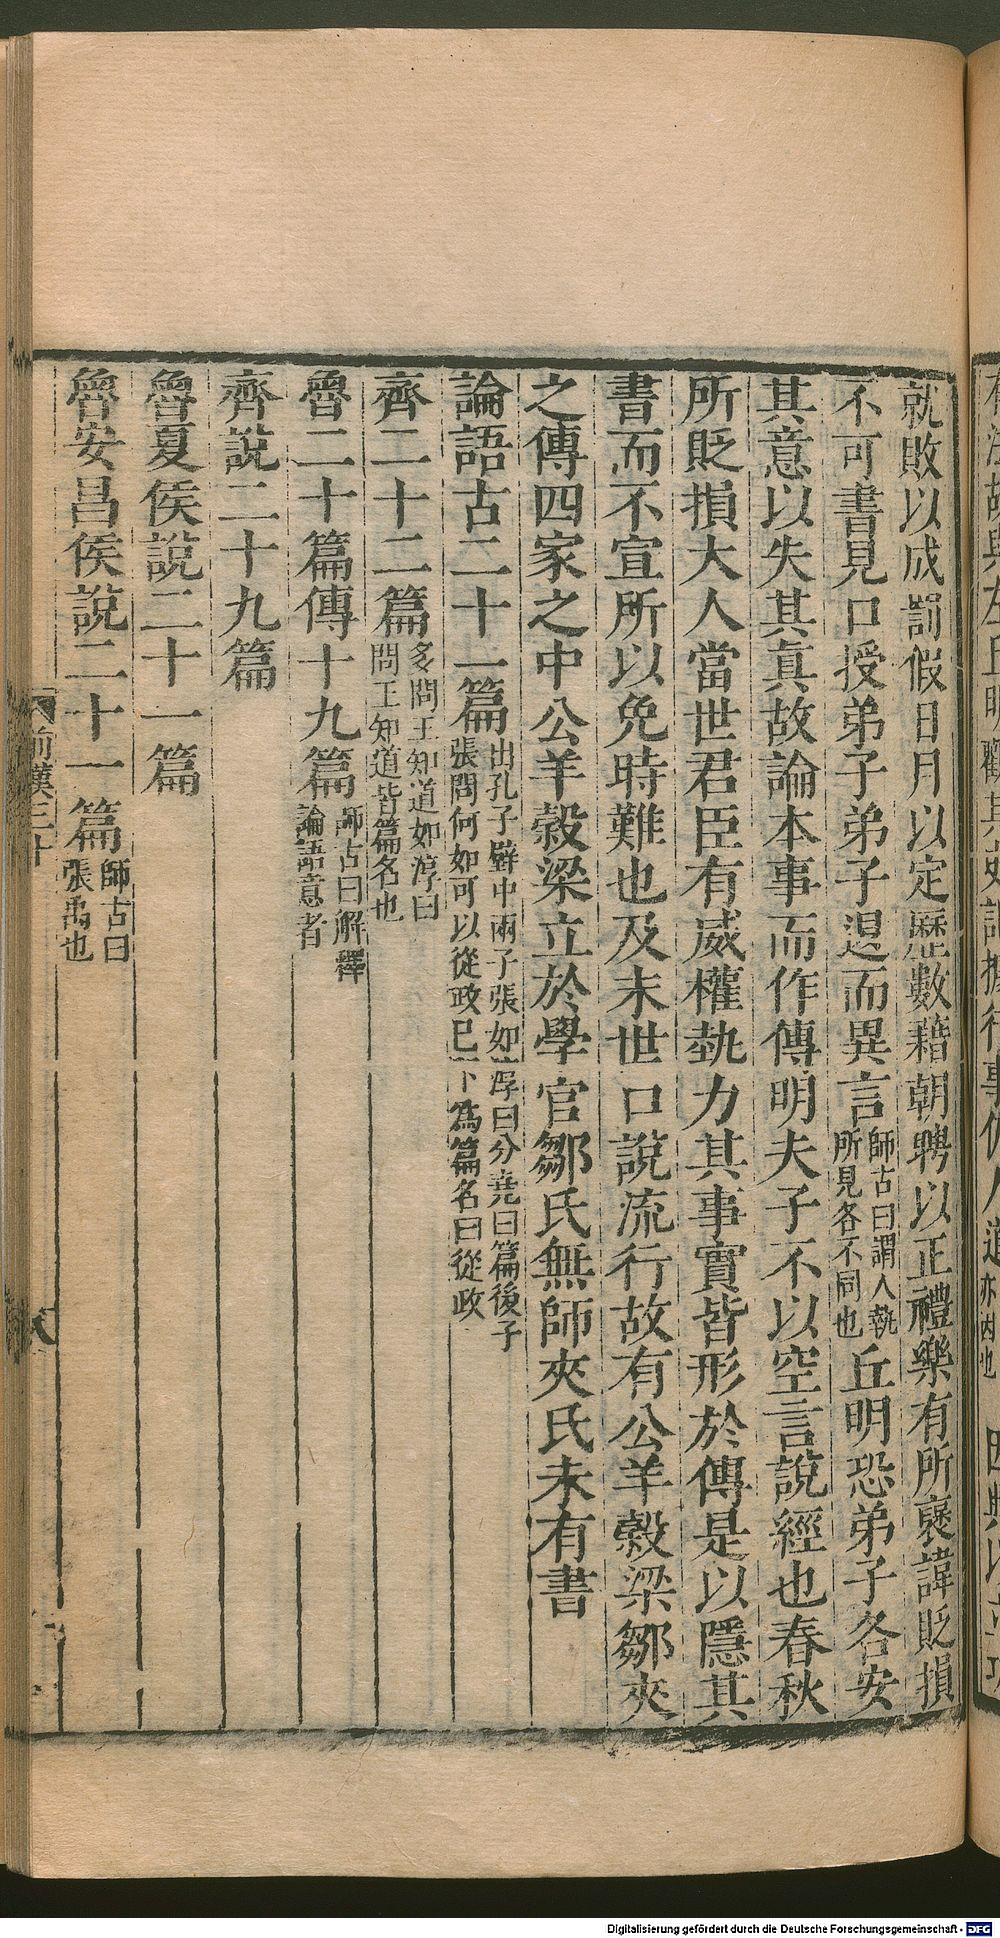 就敗以成罰假日月以定歷數藉朝聘以正禮樂有所襃諱貶損
不可書見口授弟子弟子退而異言師古曰謂人執所見各不同也丘明恐弟子各安
其意以失其真故論本事而作傳明夫子不以空言說經也春秋
所貶損大人當世君臣有威權埶力其事實皆形於傳是以隱其
書而不宣所以免時難也及末世口說流行故有公羊穀梁鄒夾
之傳四家之中公羊穀梁立於學官鄒氏無師夾氏未有書
論語古二十一篇出孔子壁中兩子張如淳曰分堯曰篇後子張問何如可以從政已下為篇名曰從政
齊二十二篇多問王知道如淳曰問王知道皆篇名也
魯二十篇傳十九篇師古曰解釋論語意者
齊說二十九篇
魯夏侯說二十一篇
魯安昌侯說二十一篇師古曰張禹也
前漢三十
Digitalisierung gefördert durch die Deutsche Forschungsgemeinschaft - DFG